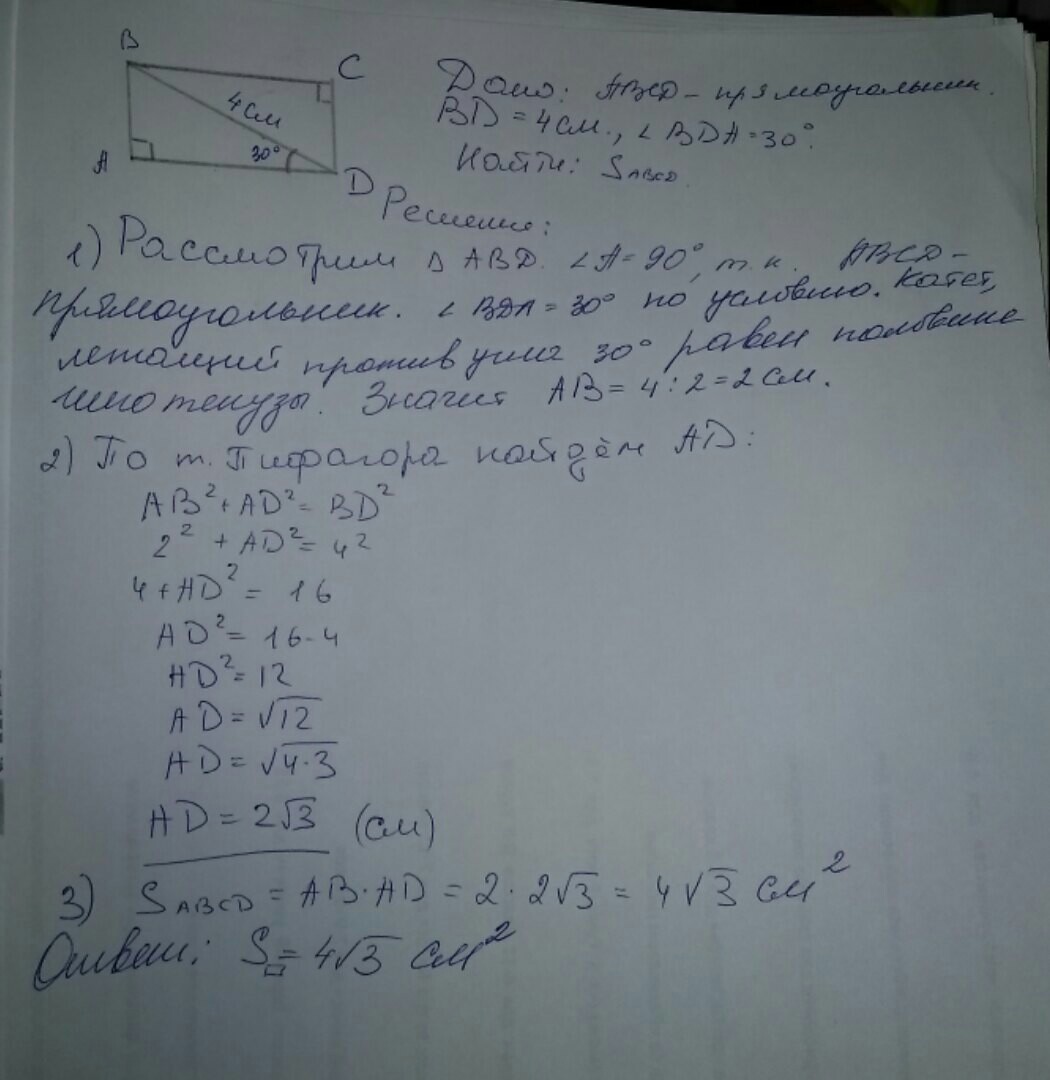 B
C
4 см
30°
A
D
Дано: ABCD - прямоугольник.
BD = 4 см., ∠BDA = 30°.
Найти: S ABCD.
Решение:
1) Рассмотрим △ ABD. ∠A = 90°, т.к. ABCD -
прямоугольник. ∠BDA = 30° по условию. Катет,
лежащий против угла 30° равен половине
гипотенузы. Значит AB = 4 : 2 = 2 см.
2) По т. Пифагора найдём AD:
AB² + AD² = BD²
2² + AD² = 4²
4 + AD² = 16
AD² = 16 - 4
AD² = 12
AD = √12
AD = √4·3
AD = 2√3 (см)
3) S ABCD = AB · AD = 2 · 2√3 = 4√3 см²
Ответ: S▭ = 4√3 см²